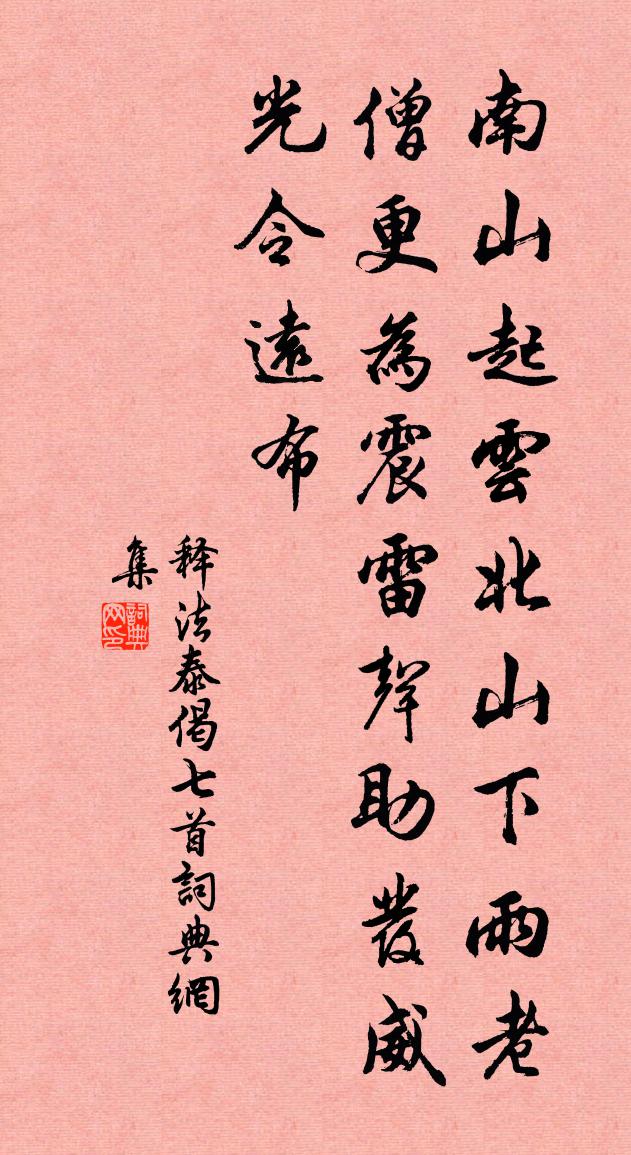 南山起雲北山下雨老
僧更為震雷聲助發威
光令遠布
释法泰偈七首詞典網
集
詞典
网印